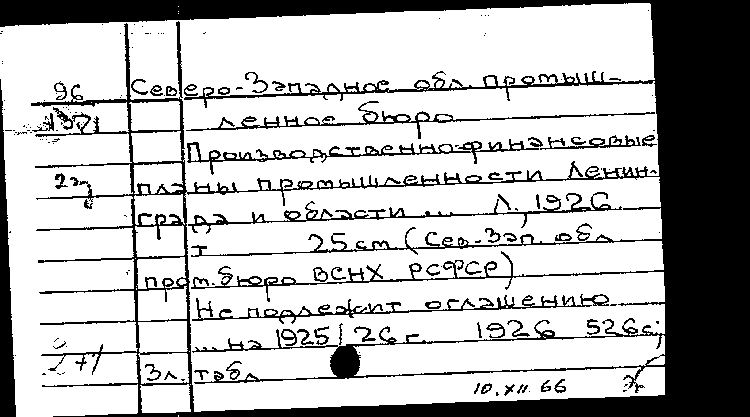 96 Северо-Западное обл. промыш-
ленное бюро
Производственно-финансовые
2эз планы промышленности Ленин-
града и области ... Л., 1926.
т 25 см. (Сев.-Зап. обл.
пром. бюро ВСНХ РСФСР)
Не подлежит оглашению
... на 1925/26 г. 1926 526 с.;
3 л. табл
10.XII.66